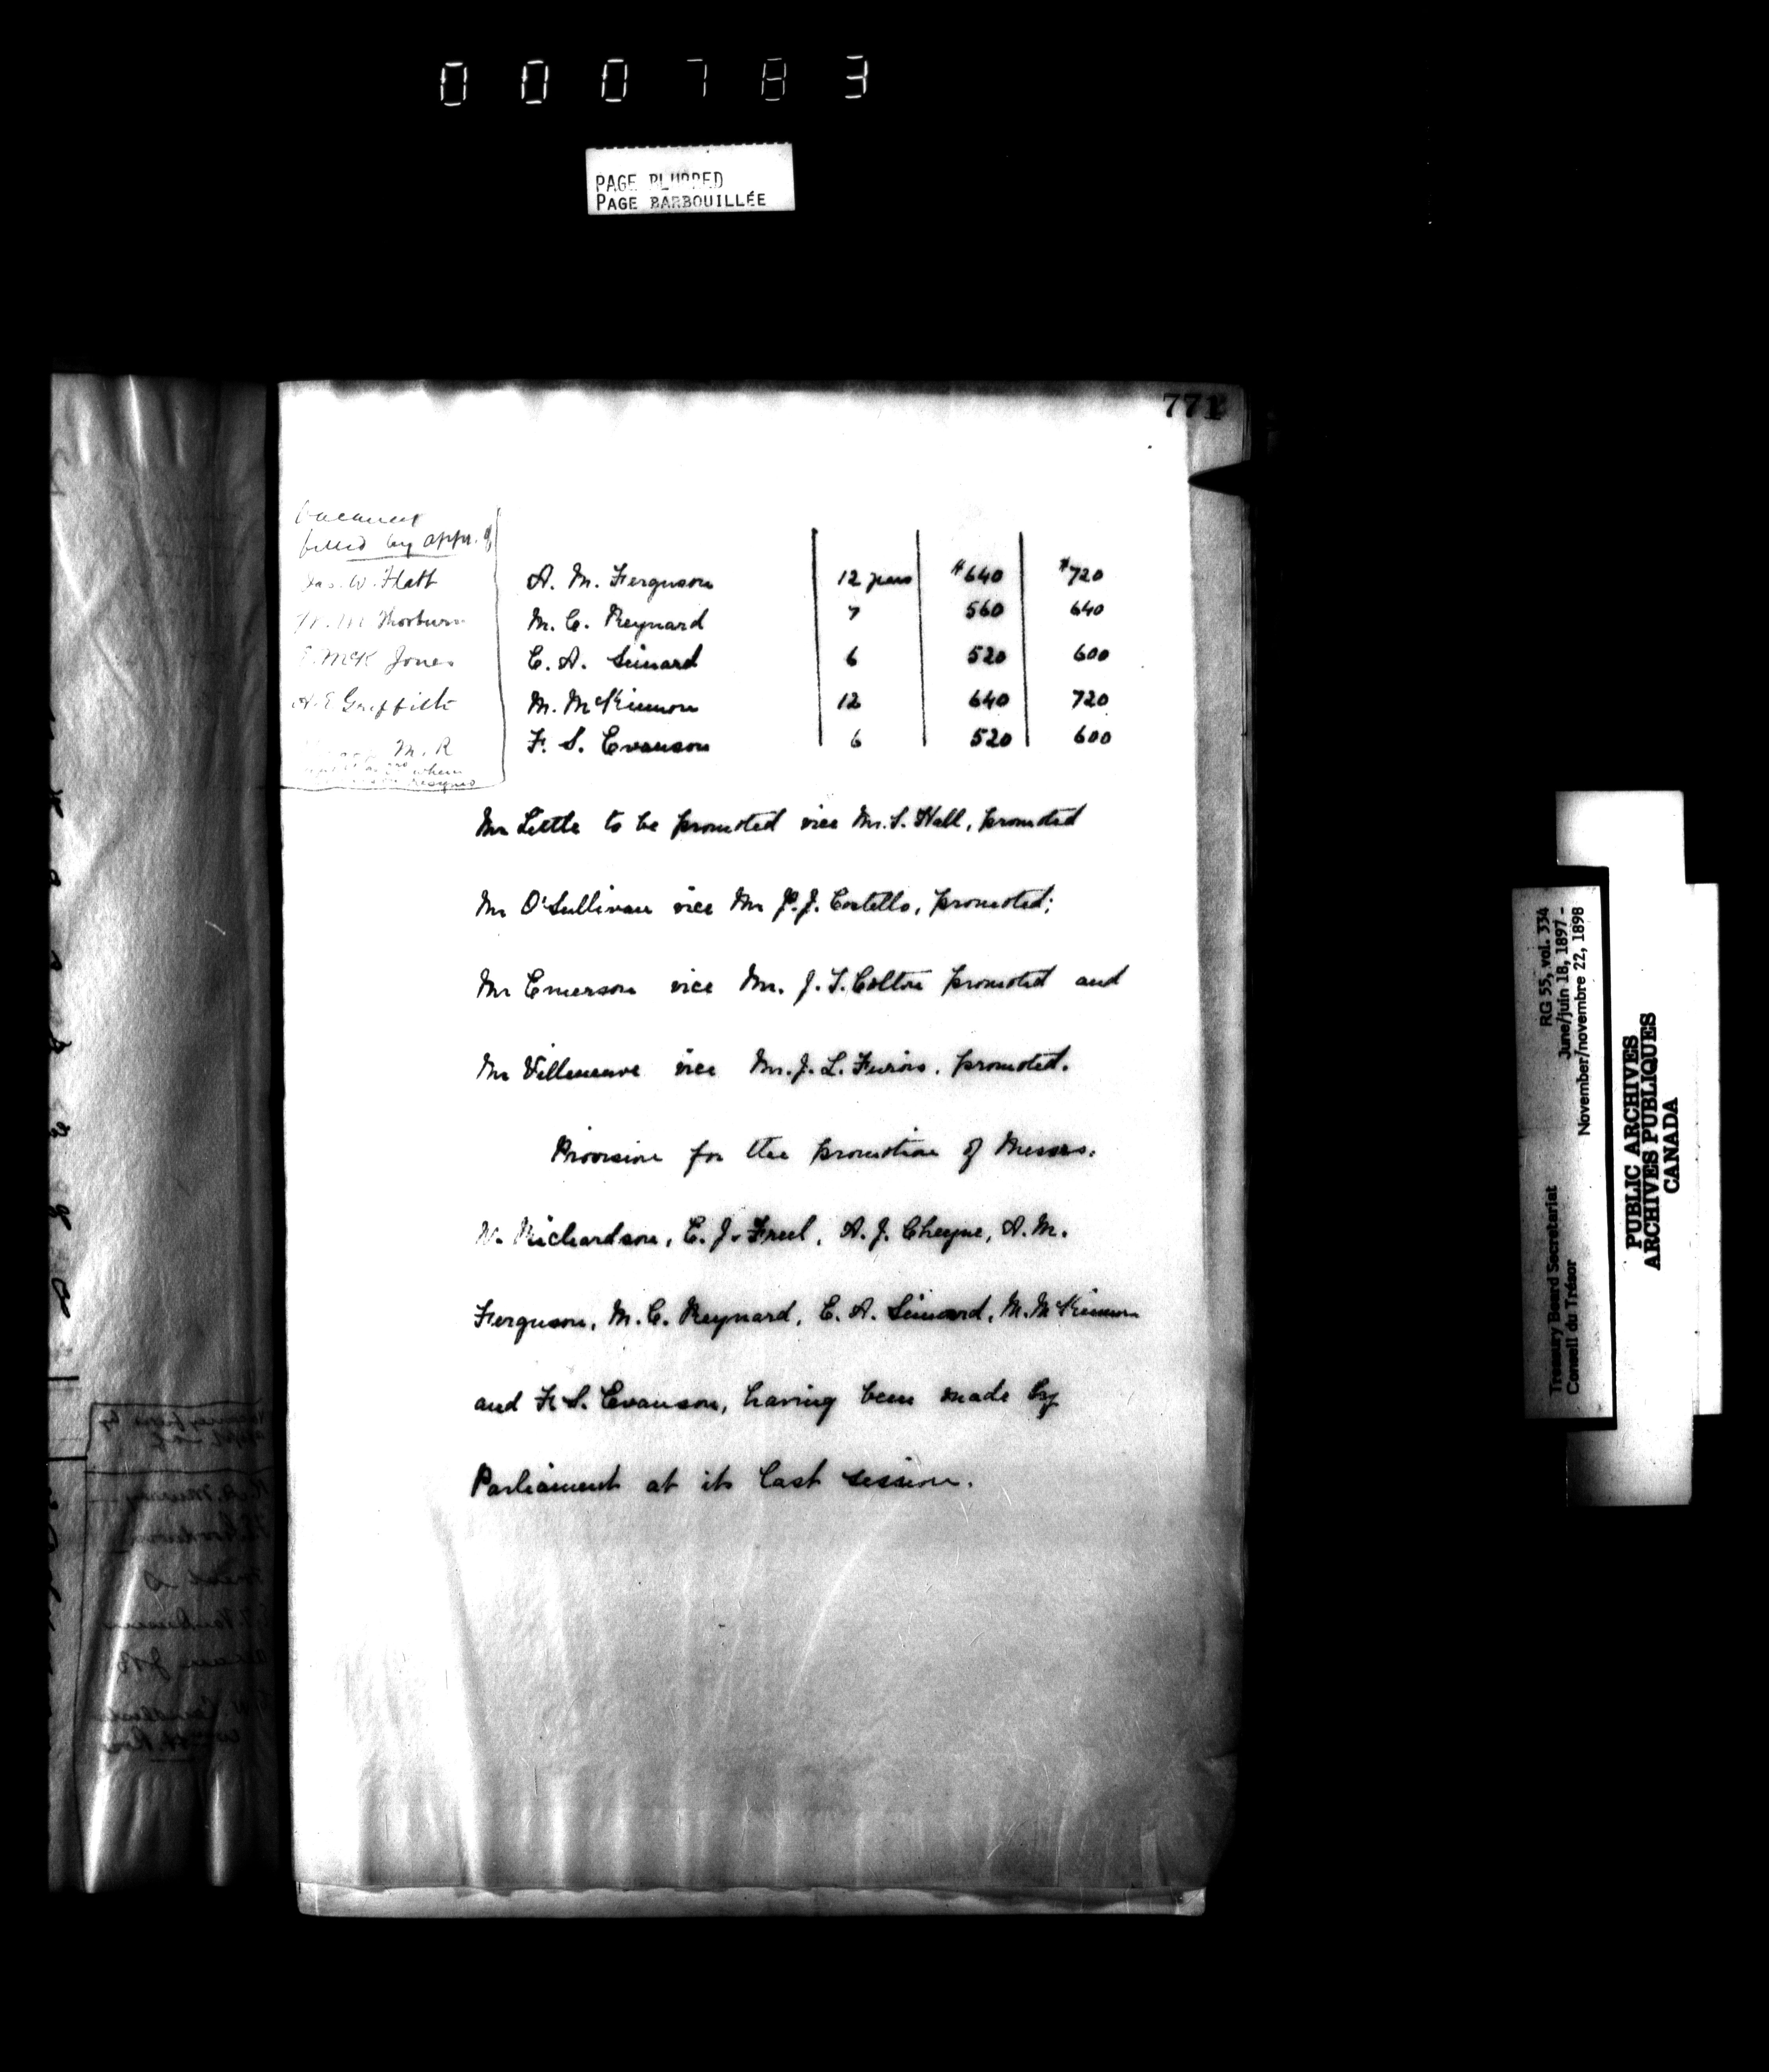 000783
PAGE BLURRED
PAGE BARBOUILLÉE
771
vacancies
filled by appr. of
Jas. W. Flatt A. M. Ferguson 12 years $640 $720
Thorburn M. C. Reynard 7 560 640
McK Jones E. A. Simard 6 520 600
A. E Griffith M. McKinnon 12 640 720
M. R F. S. Evanson 6 520 600
when
resigns
Mr Little to be promoted vice Mr. S. Hall, promoted
Mr O'Sullivan vice Mr P. J. Costello, promoted;
Mr Emerson vice Mr. J. T. Colton promoted and
Mr Villeneuve vice Mr. J. L. promoted.
Provision for the promotion of Messrs.
W. Richardson, E. J. Freel, A. J. Cheyne, A. M.
Ferguson, M. C. Reynard, E. A. Simard, M. McKinnon
and F. S. Evanson, having been made by
Parliament at its last session.
RG 55, vol. 334
June/juin 18, 1897 -
November/novembre 22, 1898
Treasury Board Secretariat
Conseil du Trésor
PUBLIC ARCHIVES
ARCHIVES PUBLIQUES
CANADA